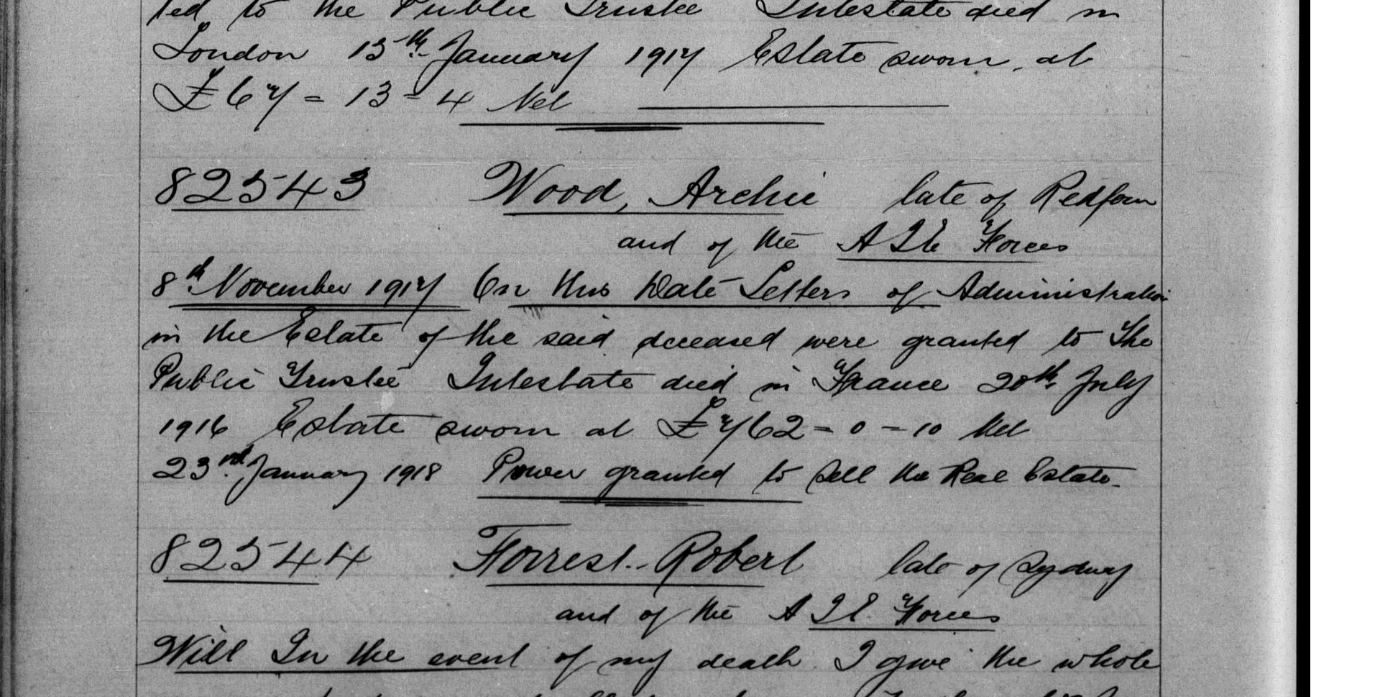 ted to the Public Trustee Intestate died in
London 15th January 1917 Estate sworn at
£67=13=4 Net
82543 Wood, Archie late of Redfern
and of the A I E Forces
8th November 1917 On this Date Letters of Administration
in the Estate of the said deceased were granted to The
Public Trustee Intestate died in France 20th July
1916 Estate sworn at £762=0=10 Net
23rd January 1918 Power granted to sell the Real Estate.
82544 Forrest Robert late of Sydney
and of the A I E Forces
Will In the event of my death I give the whole